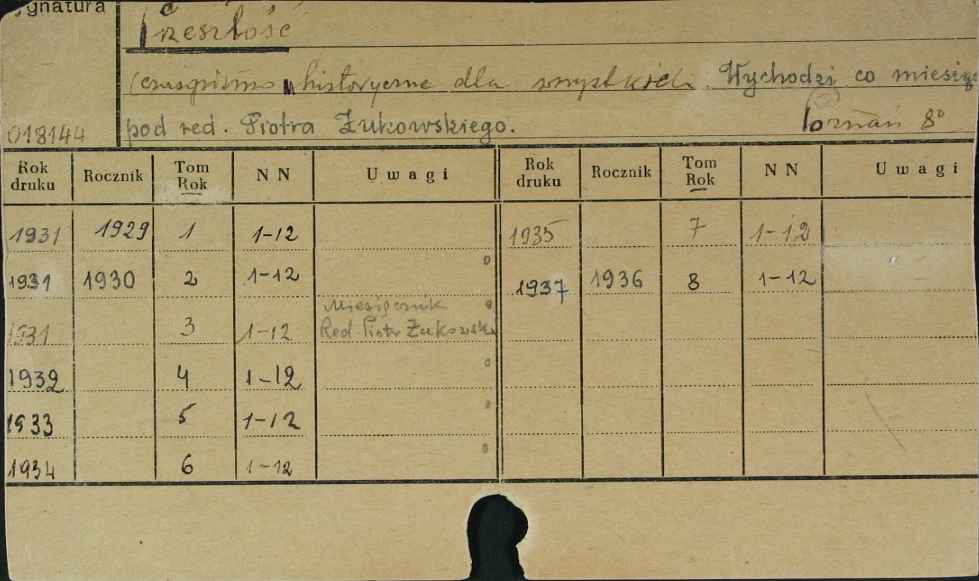 ygnatura
Przeszłość
czasopismo historyczne dla wszystkich. Wychodzi co miesiąc
pod red. Piotra Żukowskiego. Poznań 8°
018144
Rok druku Rocznik Tom Rok NN Uwagi Rok druku Rocznik Tom Rok NN Uwagi
1931 1929 1 1-12 1935 7 1-12
1931 1930 2 1-12 1937 1936 8 1-12
Miesięcznik
1931 3 1-12 Red Piotr Żukowski
1932 4 1-12
1933 5 1-12
1934 6 1-12